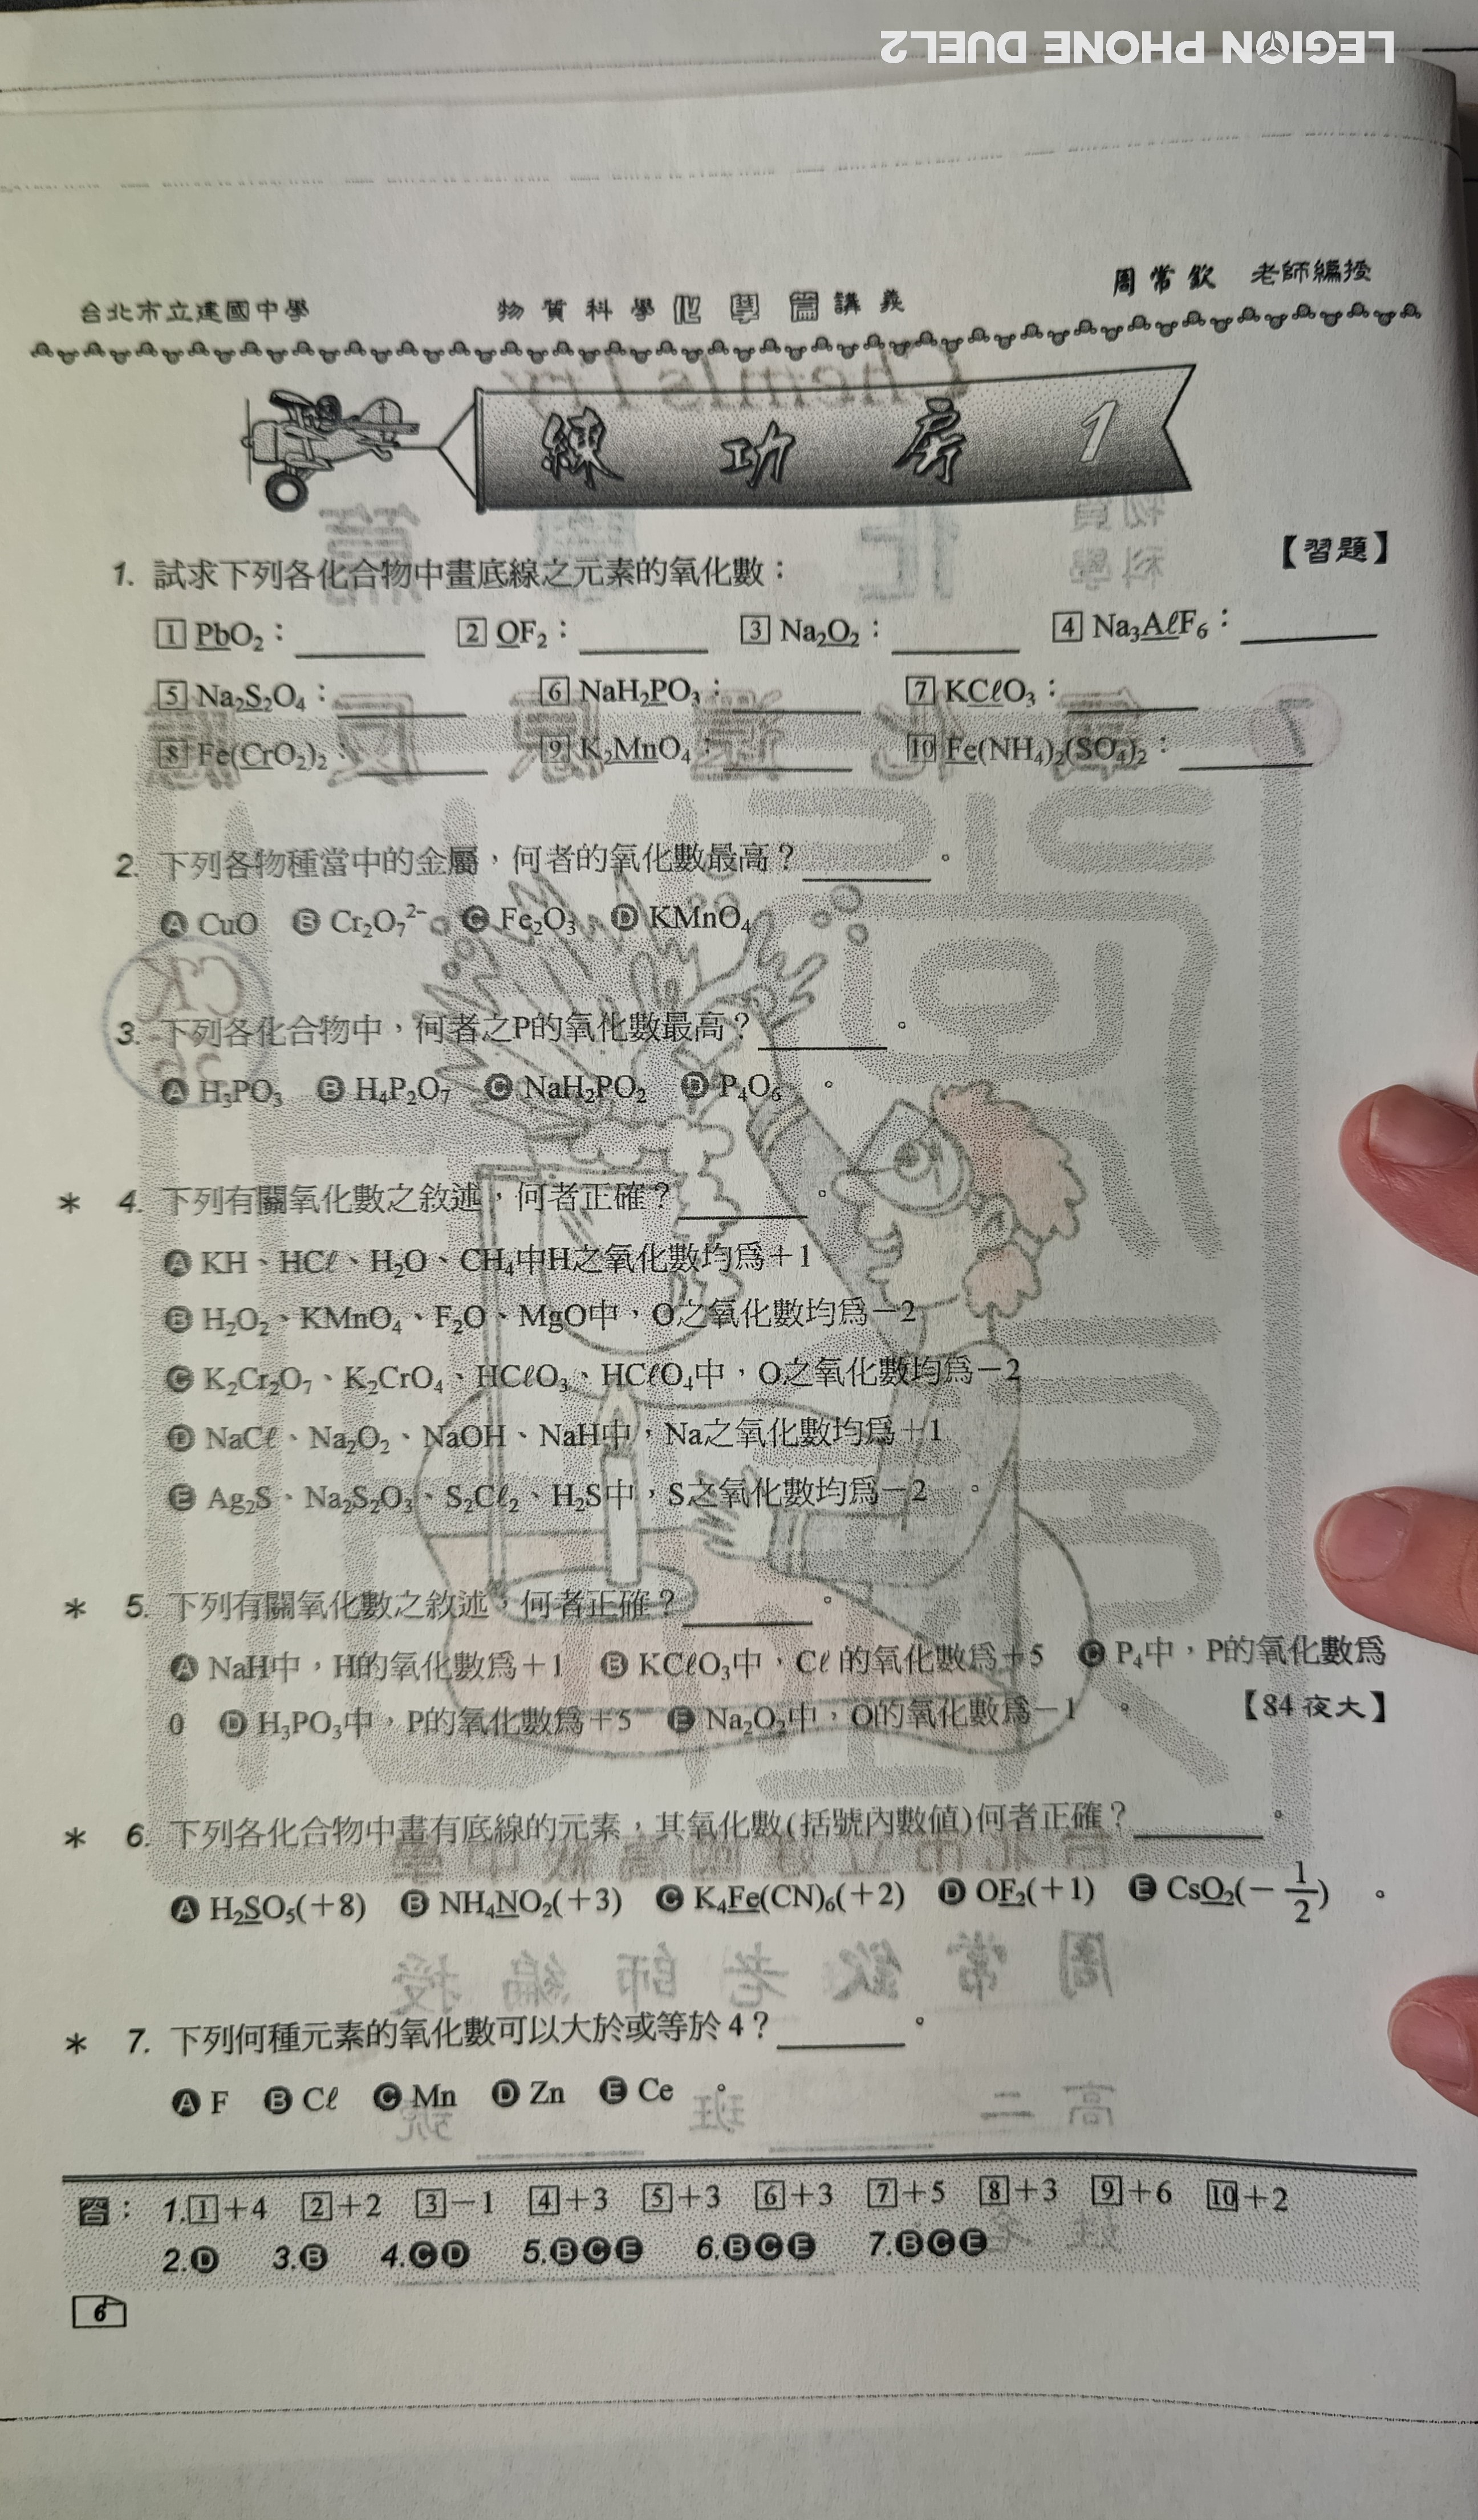 LEGION PHONE DUEL2
台北市立建國中學 物質科學化學篇講義 周常欽 老師編授
練功房1
【習題】
1. 試求下列各化合物中畫底線之元素的氧化數：
1 PbO₂： 2 OF₂： 3 Na₂O₂： 4 Na₃AℓF₆：
5 Na₂S₂O₄： 6 NaH₂PO₃： 7 KCℓO₃：
8 Fe(CrO₂)₂： 9 K₂MnO₄： 10 Fe(NH₄)₂(SO₄)₂：
2. 下列各物種當中的金屬，何者的氧化數最高？ 。
A CuO B Cr₂O₇²⁻ C Fe₂O₃ D KMnO₄
3. 下列各化合物中，何者之P的氧化數最高？ 。
A H₃PO₃ B H₄P₂O₇ C NaH₂PO₂ D P₄O₆ 。
＊ 4. 下列有關氧化數之敘述，何者正確？ 。
A KH、HCℓ、H₂O、CH₄中H之氧化數均爲＋1
B H₂O₂、KMnO₄、F₂O、MgO中，O之氧化數均爲－2
C K₂Cr₂O₇、K₂CrO₄、HCℓO₃、HCℓO₄中，O之氧化數均爲－2
D NaCℓ、Na₂O₂、NaOH、NaH中，Na之氧化數均爲＋1
E Ag₂S、Na₂S₂O₃、S₂Cℓ₂、H₂S中，S之氧化數均爲－2 。
＊ 5. 下列有關氧化數之敘述，何者正確？ 。
A NaH中，H的氧化數爲＋1 B KCℓO₃中，Cℓ 的氧化數爲＋5 C P₄中，P的氧化數爲
0 D H₃PO₃中，P的氧化數爲＋5 E Na₂O₂中，O的氧化數爲－1 。 【84 夜大】
＊ 6. 下列各化合物中畫有底線的元素，其氧化數(括號內數值)何者正確？ 。
A H₂SO₅(＋8) B NH₄NO₂(＋3) C K₄Fe(CN)₆(＋2) D OF₂(＋1) E CsO₂(－1/2) 。
＊ 7. 下列何種元素的氧化數可以大於或等於 4？ 。
A F B Cℓ C Mn D Zn E Ce 。
答： 1.1＋4 2＋2 3－1 4＋3 5＋3 6＋3 7＋5 8＋3 9＋6 10＋2
2.D 3.B 4.CD 5.BCE 6.BCE 7.BCE
6